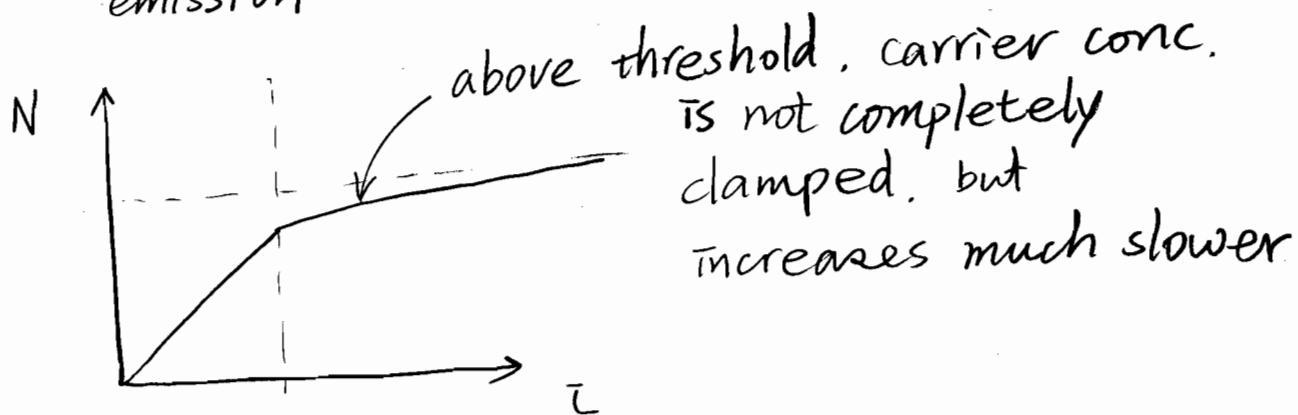 emission
above threshold, carrier conc.
N
is not completely
clamped, but
increases much slower
i